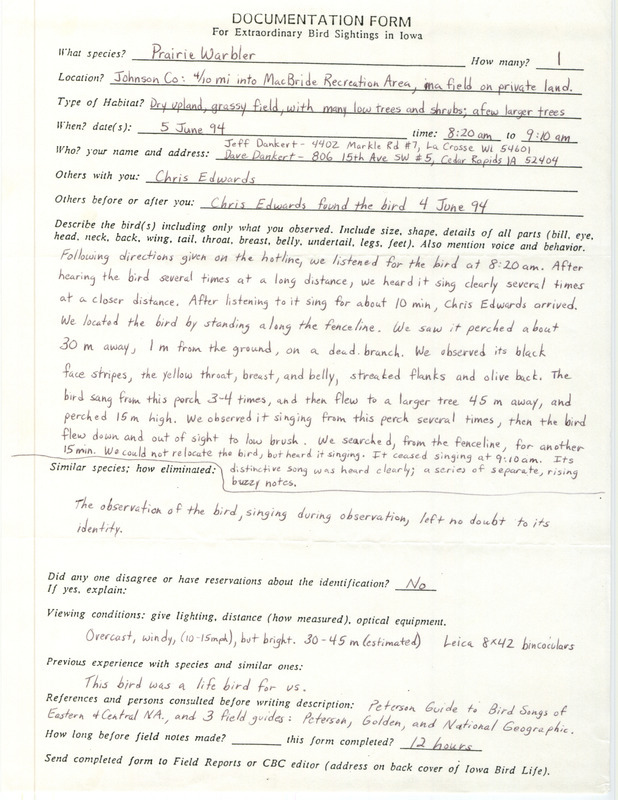 DOCUMENTATION FORM
For Extraordinary Bird Sightings in Iowa
What species? Prairie Warbler How many? 1
Location? Johnson Co: 4/10 mi into MacBride Recreation Area, in a field on private land.
Type of Habitat? Dry upland, grassy field, with many low trees and shrubs; a few larger trees
When? date(s): 5 June 94 time: 8:20 am to 9:10 am
Jeff Dankert - 4402 Markle Rd #7, La Crosse WI 54601
Who? your name and address: Dave Dankert - 806 15th Ave SW #5, Cedar Rapids IA 52404
Others with you: Chris Edwards
Others before or after you: Chris Edwards found the bird 4 June 94
Describe the bird(s) including only what you observed. Include size, shape, details of all parts (bill, eye,
head, neck, back, wing, tail, throat, breast, belly, undertail, legs, feet). Also mention voice and behavior.
Following directions given on the hotline, we listened for the bird at 8:20 am. After
hearing the bird several times at a long distance, we heard it sing clearly several times
at a closer distance. After listening to it sing for about 10 min, Chris Edwards arrived.
We located the bird by standing along the fenceline. We saw it perched about
30 m away, 1 m from the ground, on a dead branch. We observed its black
face stripes, the yellow throat, breast, and belly, streaked flanks and olive back. The
bird sang from this porch 3-4 times, and then flew to a larger tree 45 m away, and
perched 15 m high. We observed it singing from this perch several times, then the bird
flew down and out of sight to low brush. We searched, from the fenceline, for another
15 min. We could not relocate the bird, but heard it singing. It ceased singing at 9:10 am. Its
Similar species; how eliminated: distinctive song was heard clearly; a series of separate, rising
buzzy notes.
The observation of the bird, singing during observation, left no doubt to its
identity.
Did any one disagree or have reservations about the identification? No
If yes, explain:
Viewing conditions: give lighting, distance (how measured), optical equipment.
Overcast, windy, (10-15mph), but bright. 30-45 m (estimated) Leica 8x42 bincoiculars
Previous experience with species and similar ones:
This bird was a life bird for us.
References and persons consulted before writing description: Peterson Guide to Bird Songs of
Eastern & Central NA., and 3 field guides: Peterson, Golden, and National Geographic.
How long before field notes made? this form completed? 12 hours
Send completed form to Field Reports or CBC editor (address on back cover of Iowa Bird Life).